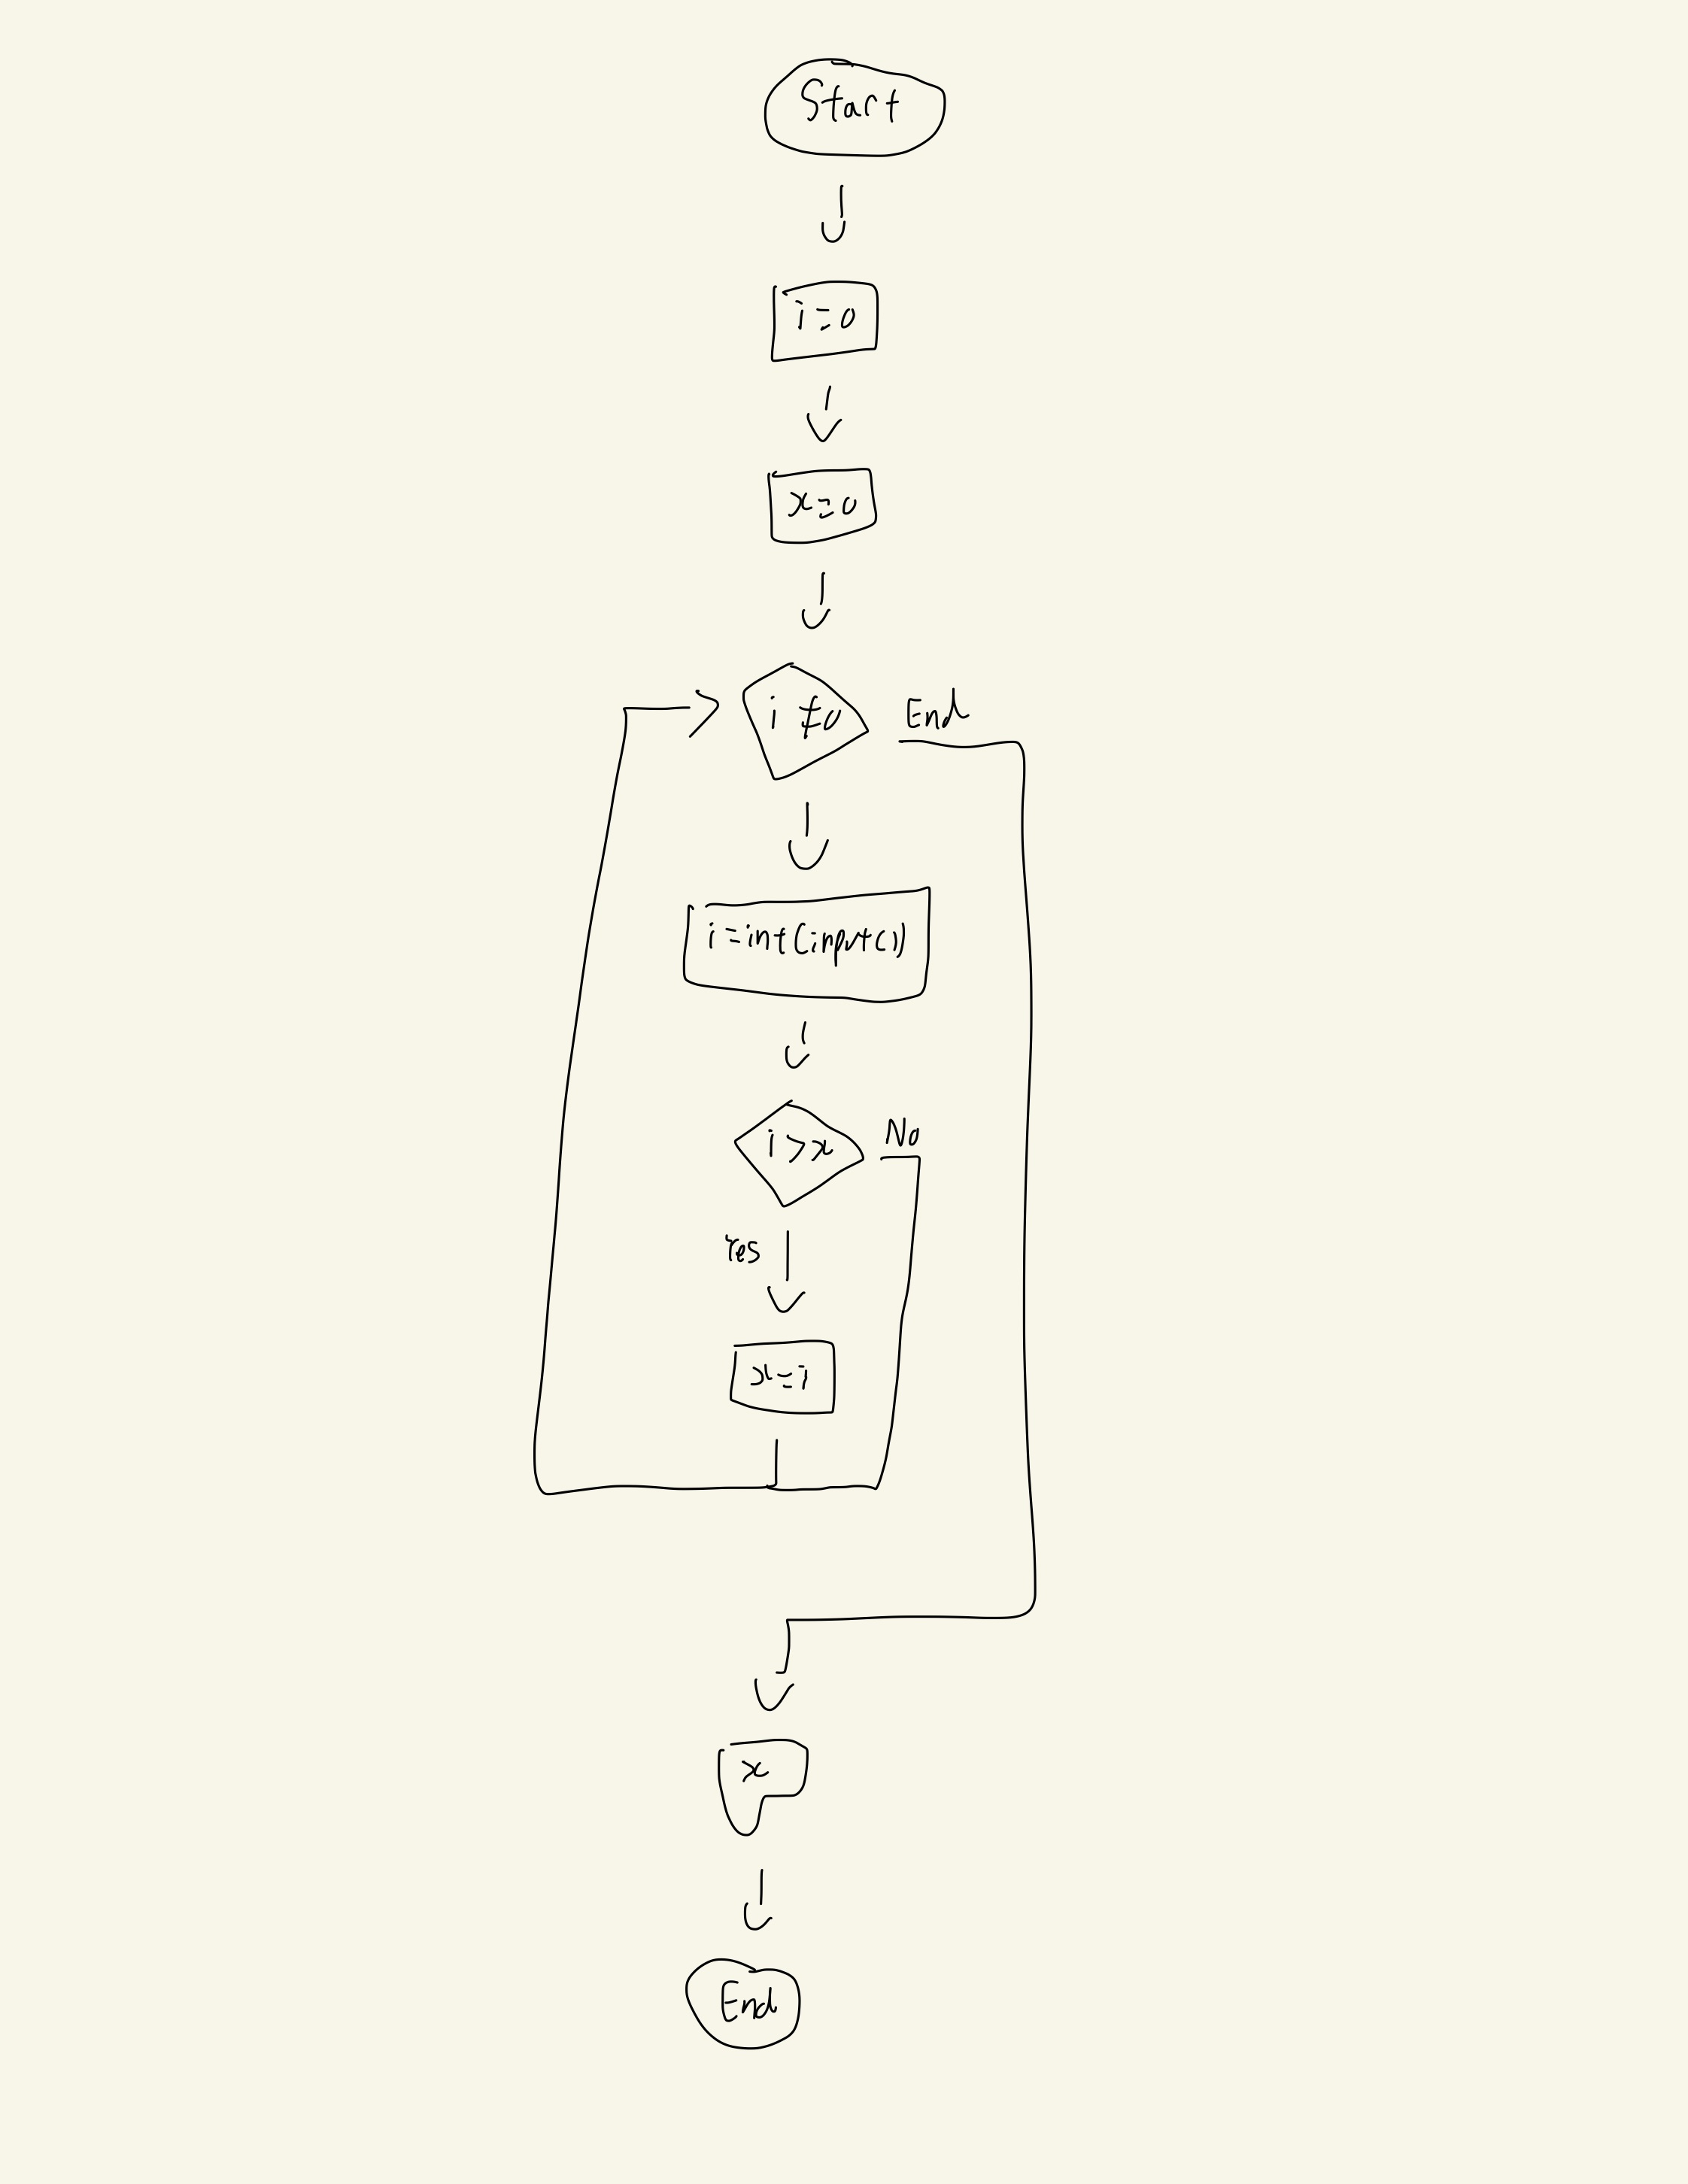 Start
i=0
x=0
i≠0
End
i=int(input())
i>x
No
Yes
x=i
x
End